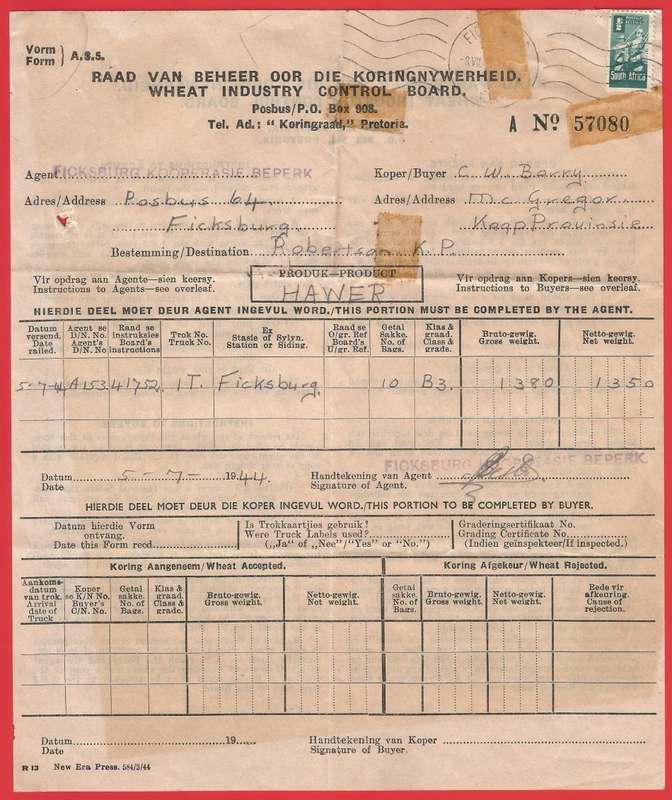 Vorm
Form } A.S.5.
RAAD VAN BEHEER OOR DIE KORINGNYWERHEID.
WHEAT INDUSTRY CONTROL BOARD.
Posbus/P.O. Box 908.
Tel. Ad.: "Koringraad," Pretoria.
South Africa
A No 57080
Agent FICKSBURG KOOPERASIE BEPERK
Koper/Buyer C W Barry
Adres/Address Posbus 64
Adres/Address Mc Gregor
Ficksburg
Kaap Provinsie
Bestemming/Destination Robertson K.P.
Vir opdrag aan Agente—sien keersy.
Instructions to Agents—see overleaf.
PRODUK—PRODUCT
HAWER
Vir opdrag aan Kopers—sien keersy.
Instructions to Buyers—see overleaf.
HIERDIE DEEL MOET DEUR AGENT INGEVUL WORD./THIS PORTION MUST BE COMPLETED BY THE AGENT.
Datum versend. Date railed.
Agent se D/N. No. Agent's D/N. No.
Raad se instruksies Board's Instructions
Trok No. Truck No.
Ex Stasie of Sylyn. Station or Siding.
Raad se U/gr. Ref. Board's U/gr. Ref.
Getal Sakke. No. of Bags.
Klas & graad. Class & grade.
Bruto-gewig. Gross weight.
Netto-gewig. Net weight.
5-7-44 A153 41752 1T. Ficksburg. 10 B3. 1380 1350
Datum 5-7-1944.
Date
Handtekening van Agent FICKSBURG KOOPERASIE BEPERK
Signature of Agent.
HIERDIE DEEL MOET DEUR DIE KOPER INGEVUL WORD./THIS PORTION TO BE COMPLETED BY BUYER.
Datum hierdie Vorm ontvang.
Date this Form recd.
Is Trokkaartjies gebruik!
Were Truck Labels used?
(„Ja" of „Nee"/"Yes" or "No.")
Graderingsertifikaat No.
Grading Certificate No.
(Indien geïnspekteer/If inspected.)
Koring Aangeneem/Wheat Accepted.
Koring Afgekeur/Wheat Rejected.
Aankoms-datum van trok. Arrival date of Truck
Koper se K/N No. Buyer's C/N. No.
Getal sakke. No. of Bags.
Klas & graad. Class & grade.
Bruto-gewig. Gross weight.
Netto-gewig. Net weight.
Getal sakke. No. of Bags.
Bruto-gewig. Gross weight.
Netto-gewig. Net weight.
Rede vir afkeuring. Cause of rejection.
Datum 19
Date
Handtekening van Koper
Signature of Buyer.
R 13 New Era Press. 584/3/44